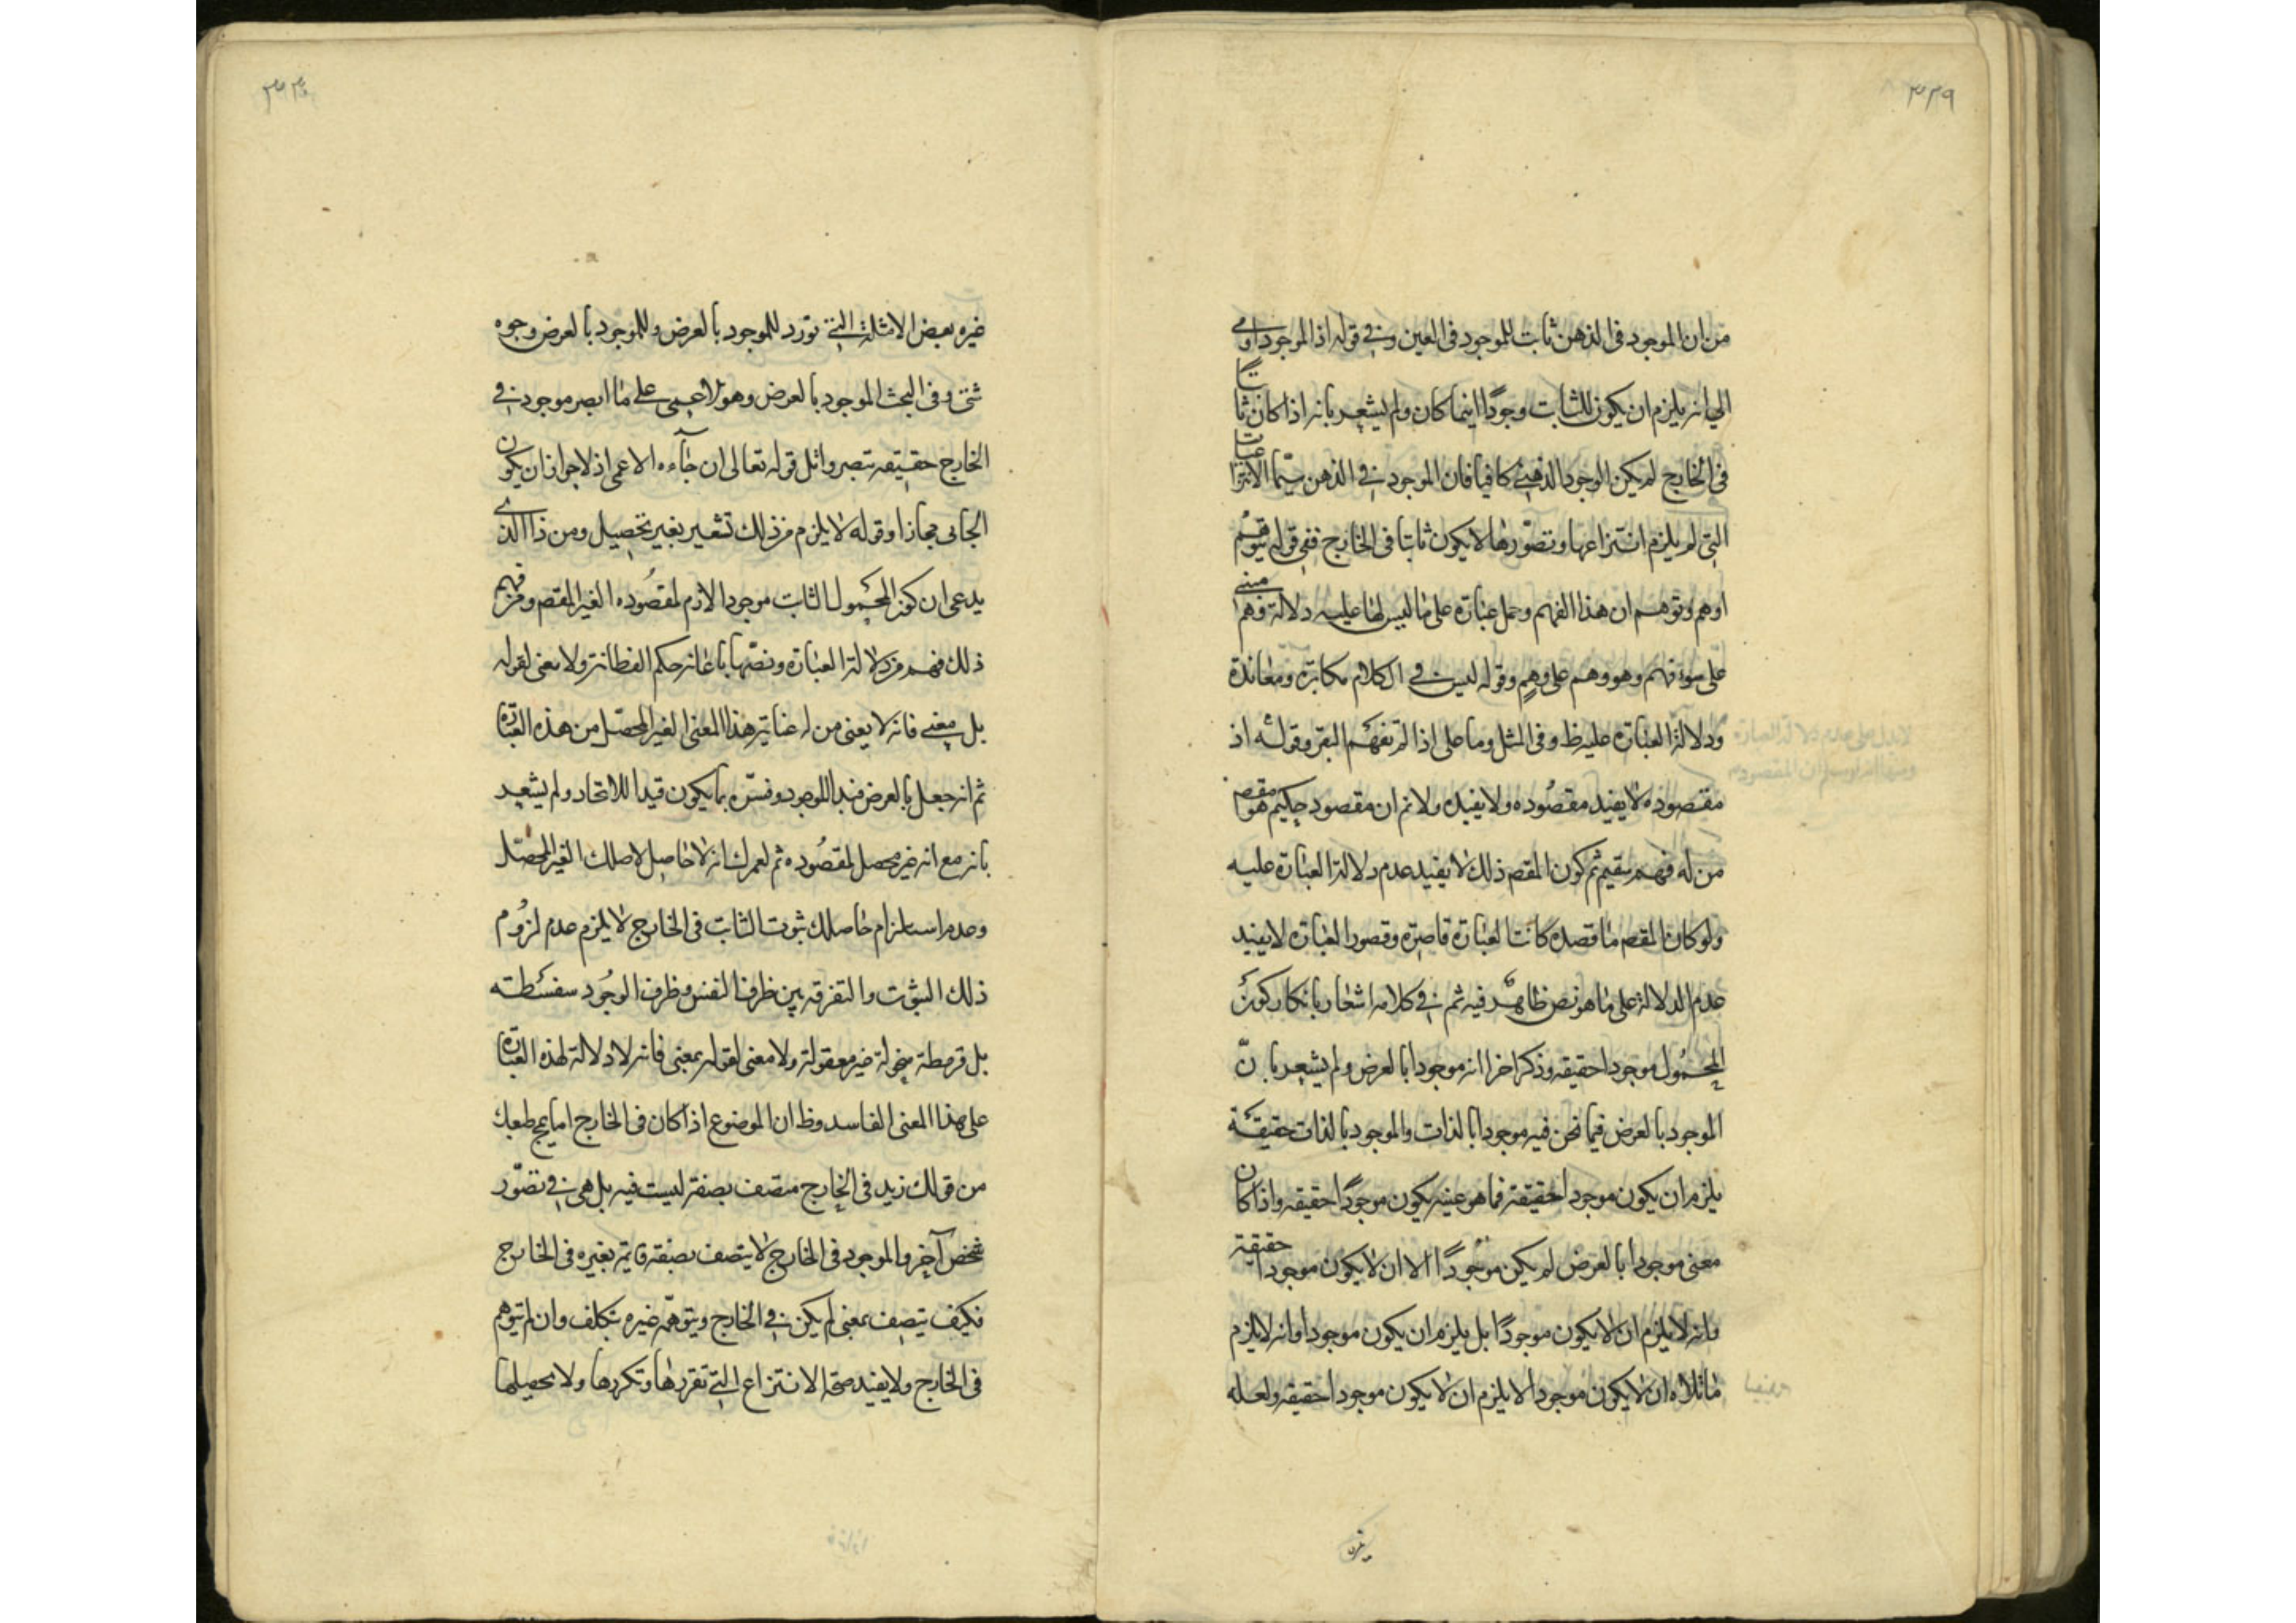 ٣٣٩
من ان الموجود فى الذهن ثابت للموجود فى العين وفي قوله اذ الموجود اومى
الي انه يلزم ان يكون للثابت وجودًا اينما كان ولم يشعر بانه اذا كان ثابتا
فى الخارج لم يكن الوجود الذهني كافيا فان الموجود في الذهن سيّما الانتزاعيات
التى لم يلزم انتزاعها وتصوّرها لا يكون ثابتا فى الخارج ففى قوله
اوهم وتوهم ان هذا الفهم وحمل عبارة على ما ليس لها عليه دلالة وهم مبنى
على سوء فهم وهو وهم على وهم وقوله ليس في الكلام مكابرة ومعاندة
ودلالة العبارة عليه ظ وفى المثل وما على اذا لم تفهم البقر وقوله اذ
مقصوده لا يفيد مقصوده ولا يفيده ولا نم ان مقصود حكيم هو مقصد
من له فهم سقيم ثم كون المقصد ذلك لا يفيد عدم دلالة العبارة عليه
ولو كان المقصد ما قصده كانت العبارة قاصرة وقصور العبارة لا يفيد
عدم الدلالة على ما هو نص ظاهر فيه ثم في كلامه اشعار بانكار كون
المحمول موجودا حقيقه وذكر اخرا انه موجود بالعرض ولم يشعر بانّ
الموجود بالعرض فيما نحن فيه موجود بالذات والموجود بالذات حقيقة
يلزم ان يكون موجودا حقيقة فما هو عينه يكون موجودًا حقيقه واذا كان
معنى موجودا بالعرض لم يكن موجودًا الا ان لا يكون موجودا حقيقة
وانه لا يلزم ان لا يكون موجودًا بل يلزم ان يكون موجودا وانه لا يلزم
ما تلاه ان لا يكون موجودا لا يلزم ان لا يكون موجودا حقيقه ولعله
غيره بعض الامثلة التي تورد للموجود بالعرض وللموجود بالعرض وجوه
شتى وفى البحث الموجود بالعرض وهو الاعمى على ما ابصر موجود في
الخارج حقيقه تبصر واتل قوله تعالى ان جآءه الاعمى اذ لا جواز ان يكون
الجائى مجازا وقوله لا يلزم من ذلك تشعير بغير تحصيل ومن ذا الذى
يدعى ان كون المحمول الثابت موجودا لازم لمقصوده الغير المقصد ومن فهم
ذلك فهم من دلالة العبارة ونصّها باعانة حكم الفطانة ولا معنى لقوله
بل بمعنى فانه لا يعنى من له عناية هذا المعنى الغير المحصّل من هذه العبارة
ثم انه جعل بالعرض قيدا للوجود وفسّره بما يكون قيدا للاتحاد ولم يشعر
بانه مع انه غير محصل لمقصوده ثم لعمرك انه لا حاصل لاصلك الغير المحصّل
وعدم استلزام حاصلك ثبوت الثابت فى الخارج لا يلزم عدم لزوم
ذلك الثبوت والتفرقه بين ظرف النفس وظرف الوجود سفسطته
بل قرمطة غير معقولة ولا معنى لقوله بمعنى فانه لا دلالة لهذه العبارة
على هذا المعنى الفاسد وظ ان الموضوع اذا كان فى الخارج اما يمج طبعك
من قولك زيد فى الخارج متصف بصفة ليست فيه بل هى في تصوّر
شخص آخر والموجود فى الخارج لا يتصف بصفة قايمة بغيره فى الخارج
فكيف يتصف بمعنى لم يكن في الخارج ويتوهّمه غيره بتكلف وان لم يتوهم
فى الخارج ولا يفيد صحة الانتزاع التي تقررها وتكررها ولا تحصيلها